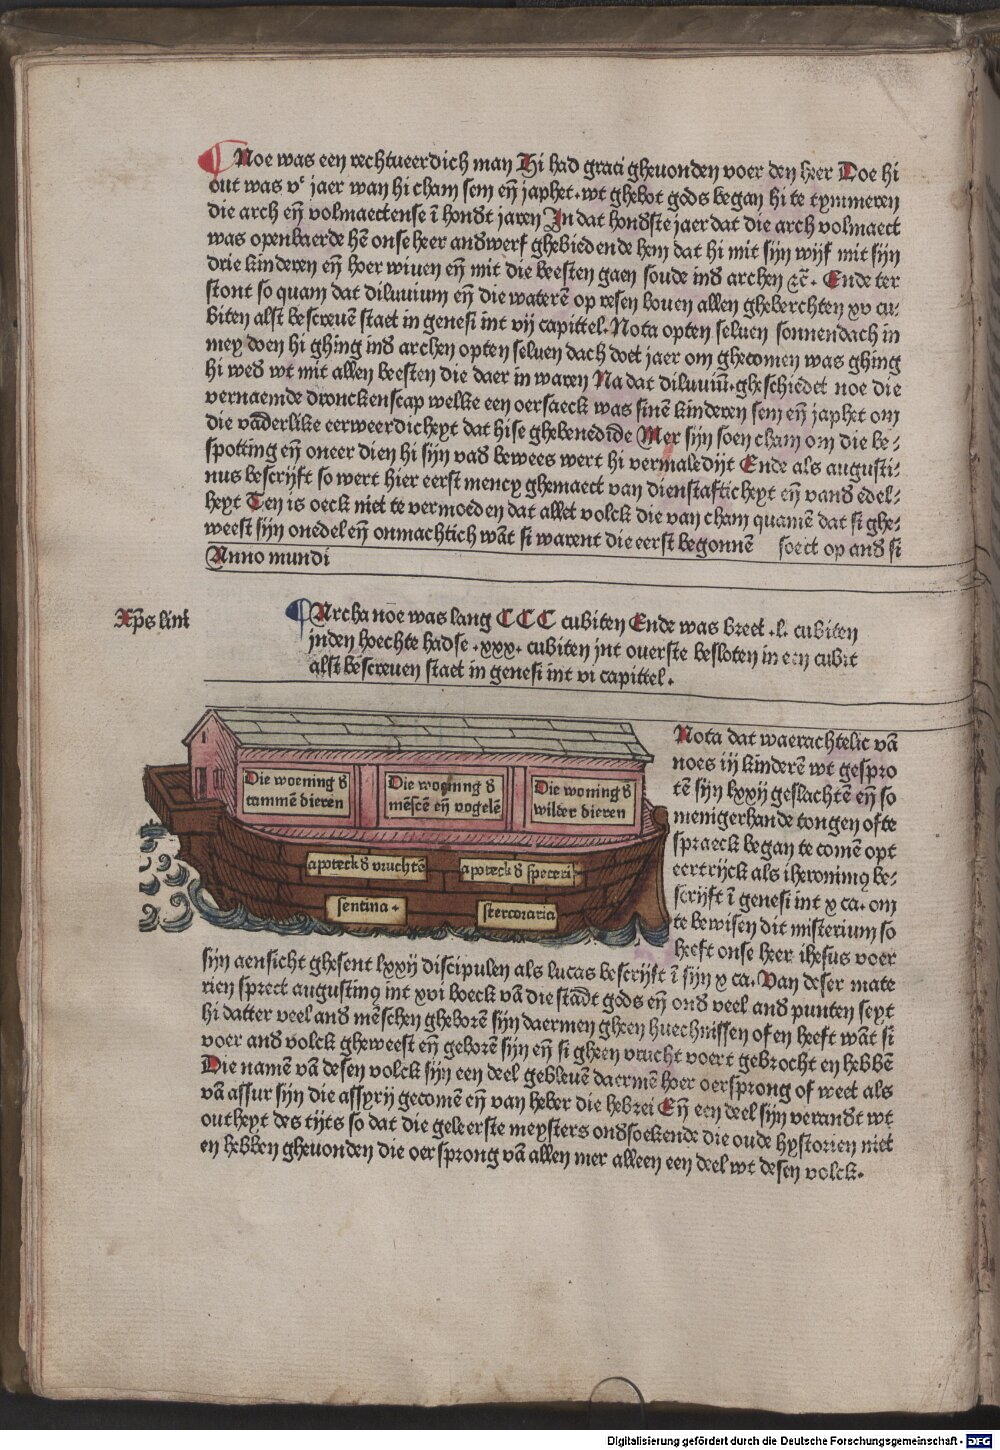 Noe was een rechtueerdich man Hi had graci gheuonden voer den heer Doe hi
out was vᶜ jaer wan hi cham sem eñ japhet. wt ghebot gods began hi te tymmeren
die arch eñ volmaectense ī hondt jaren In dat hondste jaer dat die arch volmaect
was openbaerde hē onse heer andwerf ghebiedende hem dat hi mit sijn wijf mit sijn
drie kinderen eñ hoer wiuen eñ mit die beesten gaen soude ind archen ⁊c̄. Ende ter
stont so quam dat diluuium eñ die waterē op resen bouen allen gheberchten xv cu-
biten alst bescreuē staet in genesi int vij capittel. Nota opten seluen sonnendach in
mey doen hi ghing ind archen opten seluen dach doet jaer om ghecomen was ghing
hi wed wt mit allen beesten die daer in waren Na dat diluuiū. gheschiedet noe die
vernaemde dronckenscap welke een oersaeck was sinē kinderen sem eñ japhet om
die vāderlike eerweerdicheyt dat hise ghebenedide Mer sijn soen cham om die be-
spotting eñ oneer dien hi sijn vad bewees wert hi vermaledijt Ende als augusti-
nus bescrijft so wert hier eerst mency ghemaect van dienstafticheyt eñ vand edel-
heyt Ten is oeck niet te vermoeden dat allet volck die van cham quamē dat si ghe-
weest sijn onedel eñ onmachtich wāt si warent die eerst begonnē soect op and si
Anno mundi
Xp̄s lini
Archa nōe was lang CCC cubiten Ende was breet .l. cubiten
jnden hoechte hadse .xxx. cubiten jnt ouerste besloten in een cubit
alst bescreuen staet in genesi int vi capittel.
Die woening d
tammē dieren
Die woening d
mēscē eñ vogelē
Die woning d
wilder dieren
apoteck d vruchtē
apoteck d speceri
sentina.
stercoraria
Nota dat waerachtelic vā
noes iij kinderē wt gespro
tē sijn lxxij geslachtē eñ so
menigerhande tongen ofte
spraeck began te comē opt
eertrijck als iheronimꝰ be-
scrijft ī genesi int x ca. om
te bewisen dit misterium so
heeft onse heer ihesus voer
sijn aensicht ghesent lxxij discipulen als lucas bescrijft ī sijn x ca. Van deser mate
rien sprect augustinꝰ int xvi boeck vā die stadt gods eñ ond veel and punten seyt
hi datter veel and mēschen gheborē sijn daermen gheen huechnissen of en heeft wāt si
voer and volck gheweest eñ geborē sijn eñ si gheen vrucht voert gebrocht en hebbē
Die namē vā desen volck sijn een deel gebleuē daermē hoer oersprong of weet als
vā assur sijn die assyrij gecomē eñ van heber die hebrei Eñ een deel sijn verandt wt
outheyt des tijts so dat die geleerste meysters ondsoekende die oude hystorien niet
en hebben gheuonden die oersprong vā allen mer alleen een deel wt desen volck.
Digitalisierung gefördert durch die Deutsche Forschungsgemeinschaft - DFG